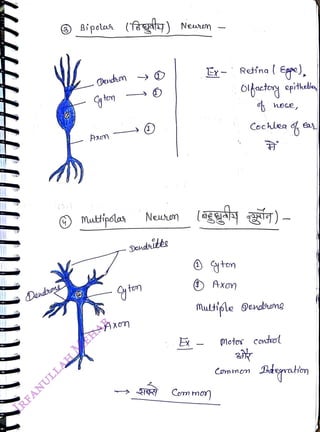 ③ Bipolar (द्विध्रुवीय) Neuron -
Dendron → ①
Cyton → ①
Axon → ①
Ex - Retina (Eye),
Olfactory epithelium
of noce,
Cochlea of ear
में
④ Multipolar Neuron (बहुध्रुवीय न्यूरॉन) -
Dendrites
Dendrons
Cyton
Axon
① Cyton
① Axon
Multiple Dendrons
Ex - Motor control
और
Common Integration
→ सबसे Common)
IRFANULLAH MEHAR